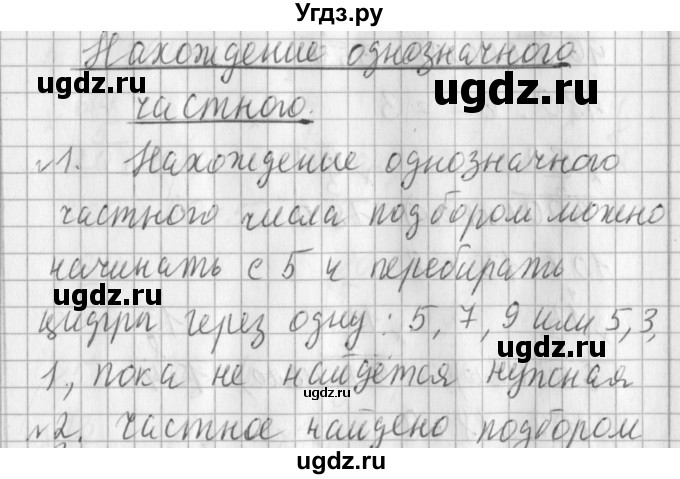 Угдз.ру
Нахождение однозначного
ugdz.ru ugdz.ru
частного.
ugdz.ru
№1. Нахождение однозначного
ugdz.ru
частного числа подбором можно
начинать с 5 и перебирать
ugdz.ru ugdz.ru
цифры через одну: 5, 7, 9 или 5, 3,
1, пока не найдётся нужная
ugdz.ru
№2. частное найдено подбором
ugdz.ru
ugdz.ru